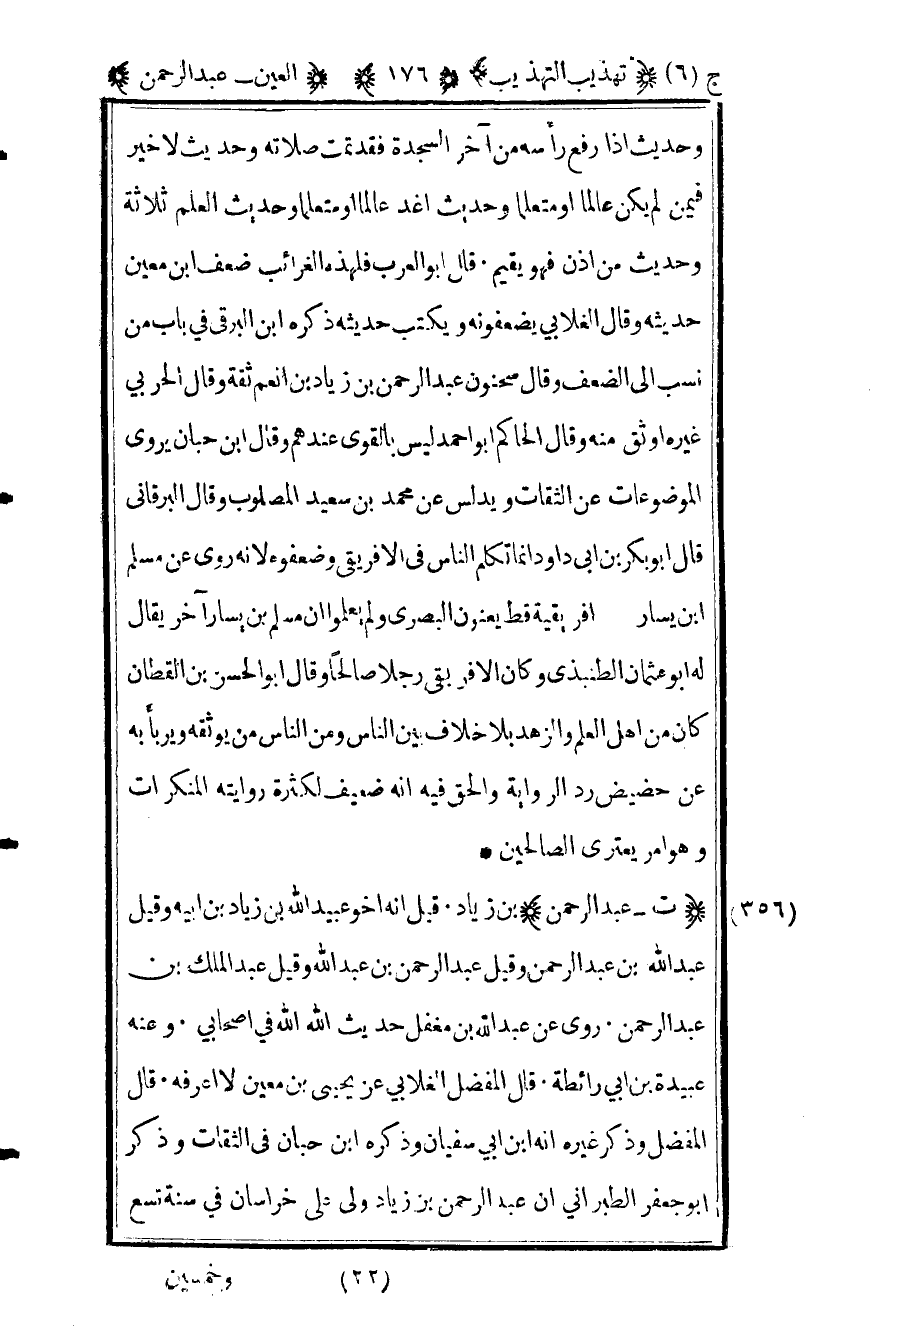 ج (٦) ﴿ تهذيب التهذيب ﴾ ١٧٦ ﴿ العين - عبدالرحمن ﴾
وحديث اذا رفع رأسه من آخر السجدة فقد تمت صلاته وحديث لاخير
فيمن لم يكن عالما او متعلما وحديث اغد عالما او متعلما وحديث العلم ثلاثة
وحديث من اذن فهو يقيم · قال ابو العرب فلهذه الغرائب ضعف ابن معين
حديثه وقال الغلابي يضعفونه ويكتب حديثه ذكره ابن البرقى في باب من
نسب الى الضعف وقال سحنون عبدالرحمن بن زياد بن انعم ثقة وقال الحربي
غيره اوثق منه وقال الحاكم ابو احمد ليس بالقوى عندهم وقال ابن حبان يروى
الموضوعات عن الثقات ويدلس عن محمد بن سعيد المصلوب وقال البرقانى
قال ابو بكر بن ابى داود انما تكلم الناس فى الافريقى وضعفوه لانه روى عن مسلم
ابن يسار افريقية قط يعنون البصرى ولم يعلموا ان مسلم بن يسار آخر يقال
له ابو عثمان الطنبذى وكان الافريقى رجلا صالحاً وقال ابو الحسن بن القطان
كان من اهل العلم والزهد بلا خلاف بين الناس ومن الناس من يوثقه ويربأ به
عن حضيض رد الرواية والحق فيه انه ضعيف لكثرة روايته المنكرات
وهو امر يعترى الصالحين •
(٣٥٦) ﴿ ت - عبدالرحمن ﴾ بن زياد · قيل انه اخو عبيد الله بن زياد بن ابيه وقيل
عبدالله بن عبدالرحمن وقيل عبدالرحمن بن عبدالله وقيل عبدالملك بن
عبدالرحمن · روى عن عبدالله بن مغفل حديث الله الله في اصحابي · وعنه
عبيدة بن ابي رائطة · قال المفضل الغلابي عن يحيى بن معين لا اعرفه · قال
المفضل وذكر غيره انه ابن ابي سفيان وذكره ابن حبان فى الثقات وذكر
ابو جعفر الطبراني ان عبدالرحمن بن زياد ولى على خراسان في سنة تسع
(٢٢) وخمسين